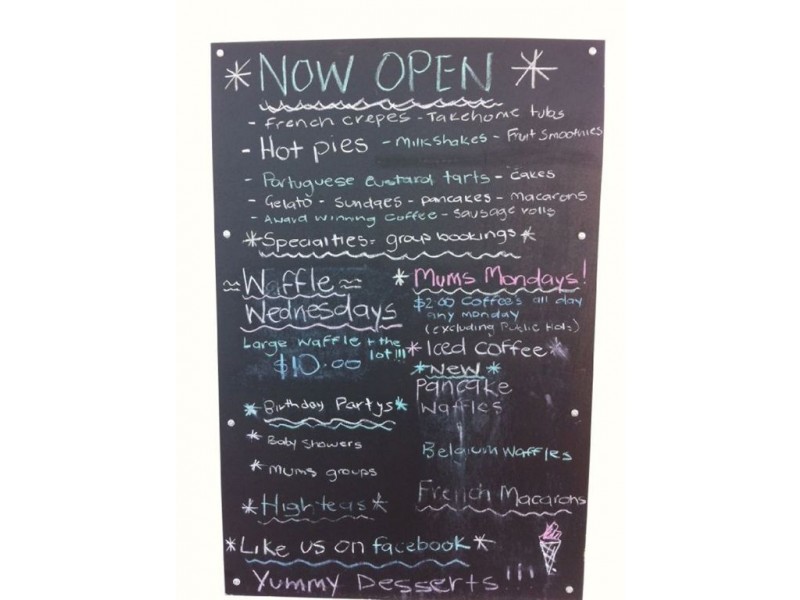 * NOW OPEN *
- French crepes - Takehome tubs
- Hot pies - Milkshakes - Fruit Smoothies
- Portuguese custard tarts - cakes
- Gelato - Sundaes - pancakes - Macarons
- Award winning coffee - Sausage rolls
* Specialties = group bookings *
≈ Waffle ≈
Wednesdays
Large waffle + the
lot!!!
$10.00
* Mums Mondays!
$2.00 Coffee's all day
any monday
(excluding Public Hols)
* Iced coffee *
* New *
Pancake
Waffles
Belgium Waffles
French Macarons
* Birthday Partys *
* Baby Showers
* Mums groups
* High teas *
* Like us on facebook *
Yummy Desserts!!!